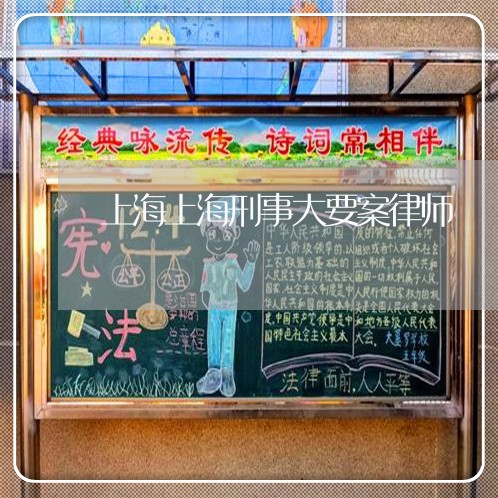 经典咏流传 诗词常相伴
上海上海刑事大要案律师
12.4
宪
法
公平
公正
总章程
中华人民共和国
是工人阶级领导的,以
工农联盟为基础的
人民民主专政的社会主义
国家,社会主义制度是中
华人民共和国的根本制
度,中国共产党领导是中
国特色社会主义最本
质的特征,禁止任何
组织或者个人破坏社会
主义制度,中华人民共和
国的一切权利属于人民,
人民行使国家权力的机
关是全国人民代表大会
和地方各级人民代表
大会。
五年级
法律面前,人人平等